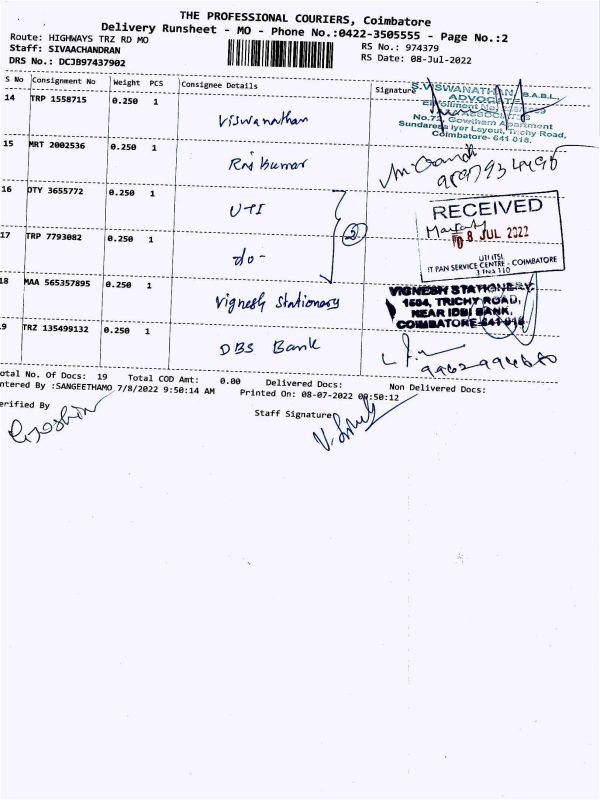 THE PROFESSIONAL COURIERS, Coimbatore
Delivery Runsheet - MO - Phone No.:0422-3505555 - Page No.:2
Route: HIGHWAYS TRZ RD MO
RS No.: 974379
Staff: SIVAACHANDRAN
RS Date: 08-Jul-2022
DRS No.: DCJB97437902
S No Consignment No Weight PCS Consignee Details Signature
14 TRP 1558715 0.250 1 Viswanathan
S.VISWANATHAN, B.A.B.L.,
ADVOCATE
No.72, Gowtham Apartment
Sundaresa Iyer Layout, Trichy Road,
Coimbatore- 641 018.
15 MRT 2002536 0.250 1 Raj kumar
16 OTY 3655772 0.250 1 UTI
RECEIVED
08 JUL 2022
UTI ITSL
IT PAN SERVICE CENTRE - COIMBATORE
17 TRP 7793082 0.250 1 do -
18 MAA 565357895 0.250 1 Vignesh Stationary
VIGNESH STATIONERY
1504, TRICHY ROAD,
NEAR IDBI BANK,
COIMBATORE-641 018
9 TRZ 135499132 0.250 1 DBS Bank
otal No. Of Docs: 19 Total COD Amt: 0.00 Delivered Docs: Non Delivered Docs:
ntered By :SANGEETHAMO 7/8/2022 9:50:14 AM Printed On: 08-07-2022 09:50:12
erified By
Staff Signature